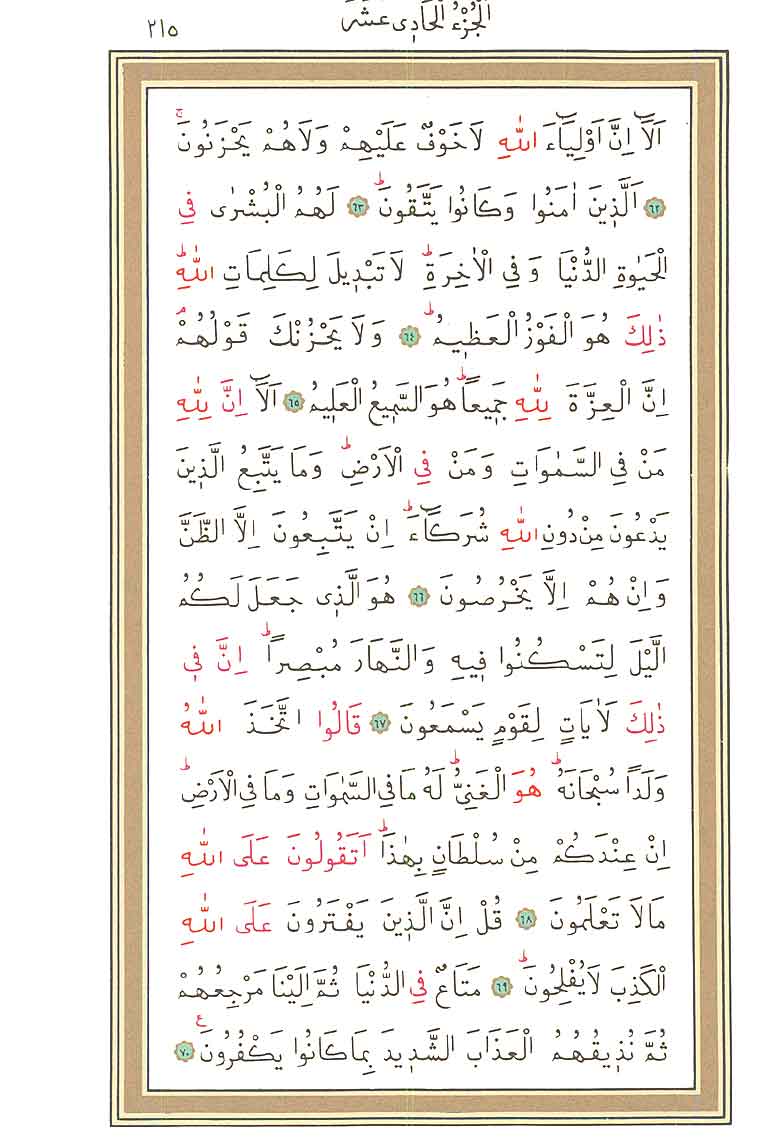 اَلْجُزْءُ الْحَادِى عَشَرَ
٢١٥
اَلَٓا اِنَّ اَوْلِيَٓاءَ اللّٰهِ لَاخَوْفٌ عَلَيْهِمْ وَلَاهُمْ يَحْزَنُونَۚ
٦٢ اَلَّذ۪ينَ اٰمَنُوا وَكَانُوا يَتَّقُونَۜ ٦٣ لَهُمُ الْبُشْرٰى فِي
الْحَيٰوةِ الدُّنْيَا وَفِي الْاٰخِرَةِۜ لَا تَبْد۪يلَ لِكَلِمَاتِ اللّٰهِۜ
ذٰلِكَ هُوَ الْفَوْزُ الْعَظ۪يمُۜ ٦٤ وَلَا يَحْزُنْكَ قَوْلُهُمْۢ
اِنَّ الْعِزَّةَ لِلّٰهِ جَم۪يعاًۜ هُوَ السَّم۪يعُ الْعَل۪يمُ ٦٥ اَلَٓا اِنَّ لِلّٰهِ
مَنْ فِي السَّمٰوَاتِ وَمَنْ فِي الْاَرْضِۜ وَمَا يَتَّبِعُ الَّذ۪ينَ
يَدْعُونَ مِنْ دُونِ اللّٰهِ شُرَكَٓاءَۜ اِنْ يَتَّبِعُونَ اِلَّا الظَّنَّ
وَاِنْ هُمْ اِلَّا يَخْرُصُونَ ٦٦ هُوَ الَّذ۪ى جَعَلَ لَكُمُ
الَّيْلَ لِتَسْكُنُوا ف۪يهِ وَالنَّهَارَ مُبْصِراًۜ اِنَّ ف۪ي
ذٰلِكَ لَاٰيَاتٍ لِقَوْمٍ يَسْمَعُونَ ٦٧ قَالُوا اتَّخَذَ اللّٰهُ
وَلَدًا سُبْحَانَهُۜ هُوَ الْغَنِيُّۜ لَهُ مَا فِي السَّمٰوَاتِ وَمَا فِي الْاَرْضِۜ
اِنْ عِنْدَكُمْ مِنْ سُلْطَانٍ بِهٰذَاۜ اَتَقُولُونَ عَلَى اللّٰهِ
مَالَا تَعْلَمُونَ ٦٨ قُلْ اِنَّ الَّذ۪ينَ يَفْتَرُونَ عَلَى اللّٰهِ
الْكَذِبَ لَايُفْلِحُونَۜ ٦٩ مَتَاعٌ فِي الدُّنْيَا ثُمَّ اِلَيْنَا مَرْجِعُهُمْ
ثُمَّ نُذ۪يقُهُمُ الْعَذَابَ الشَّد۪يدَ بِمَا كَانُوا يَكْفُرُونَ ع ٧٠